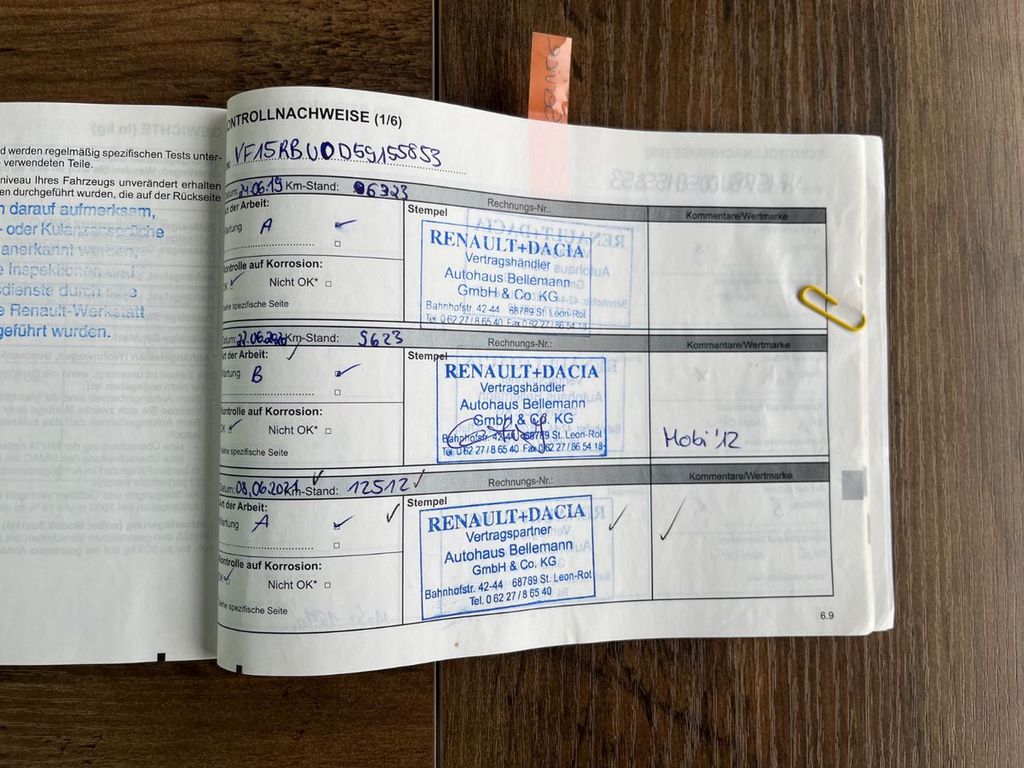 d werden regelmäßig spezifischen Tests unter-
verwendeten Teile.
niveau Ihres Fahrzeugs unverändert erhalten
en durchgeführt wurden, die auf der Rückseite
n darauf aufmerksam,
- oder Kulanzansprüche
anerkannt werden,
e Inspektionen und
sdienste durch eine
e Renault-Werkstatt
geführt wurden.
ONTROLLNACHWEISE (1/6)
VF15RBU0D59155853
Datum: 24.06.19 Km-Stand: 06323 Rechnungs-Nr.: Kommentare/Wertmarke
Art der Arbeit: Stempel
Wartung A
Kontrolle auf Korrosion:
OK Nicht OK*
ehe spezifische Seite
RENAULT+DACIA
Vertragshändler
Autohaus Bellemann
GmbH & Co. KG
Bahnhofstr. 42-44 68789 St. Leon-Rot
Tel. 0 62 27 / 8 65 40 Fax 0 62 27 / 86 54 18
Datum: 22.06.2020 Km-Stand: 9623 Rechnungs-Nr.: Kommentare/Wertmarke
Art der Arbeit: Stempel
Wartung B
Kontrolle auf Korrosion:
OK Nicht OK*
ehe spezifische Seite
RENAULT+DACIA
Vertragshändler
Autohaus Bellemann
GmbH & Co. KG
Bahnhofstr. 42-44 68789 St. Leon-Rot
Tel. 0 62 27 / 8 65 40 Fax 0 62 27 / 86 54 18
Mobi '12
Datum: 08.06.2021 Km-Stand: 12512 Rechnungs-Nr.: Kommentare/Wertmarke
Art der Arbeit: Stempel
Wartung A
Kontrolle auf Korrosion:
OK Nicht OK*
ehe spezifische Seite
RENAULT+DACIA
Vertragspartner
Autohaus Bellemann
GmbH & Co. KG
Bahnhofstr. 42-44 68789 St. Leon-Rot
Tel. 0 62 27 / 8 65 40
6.9